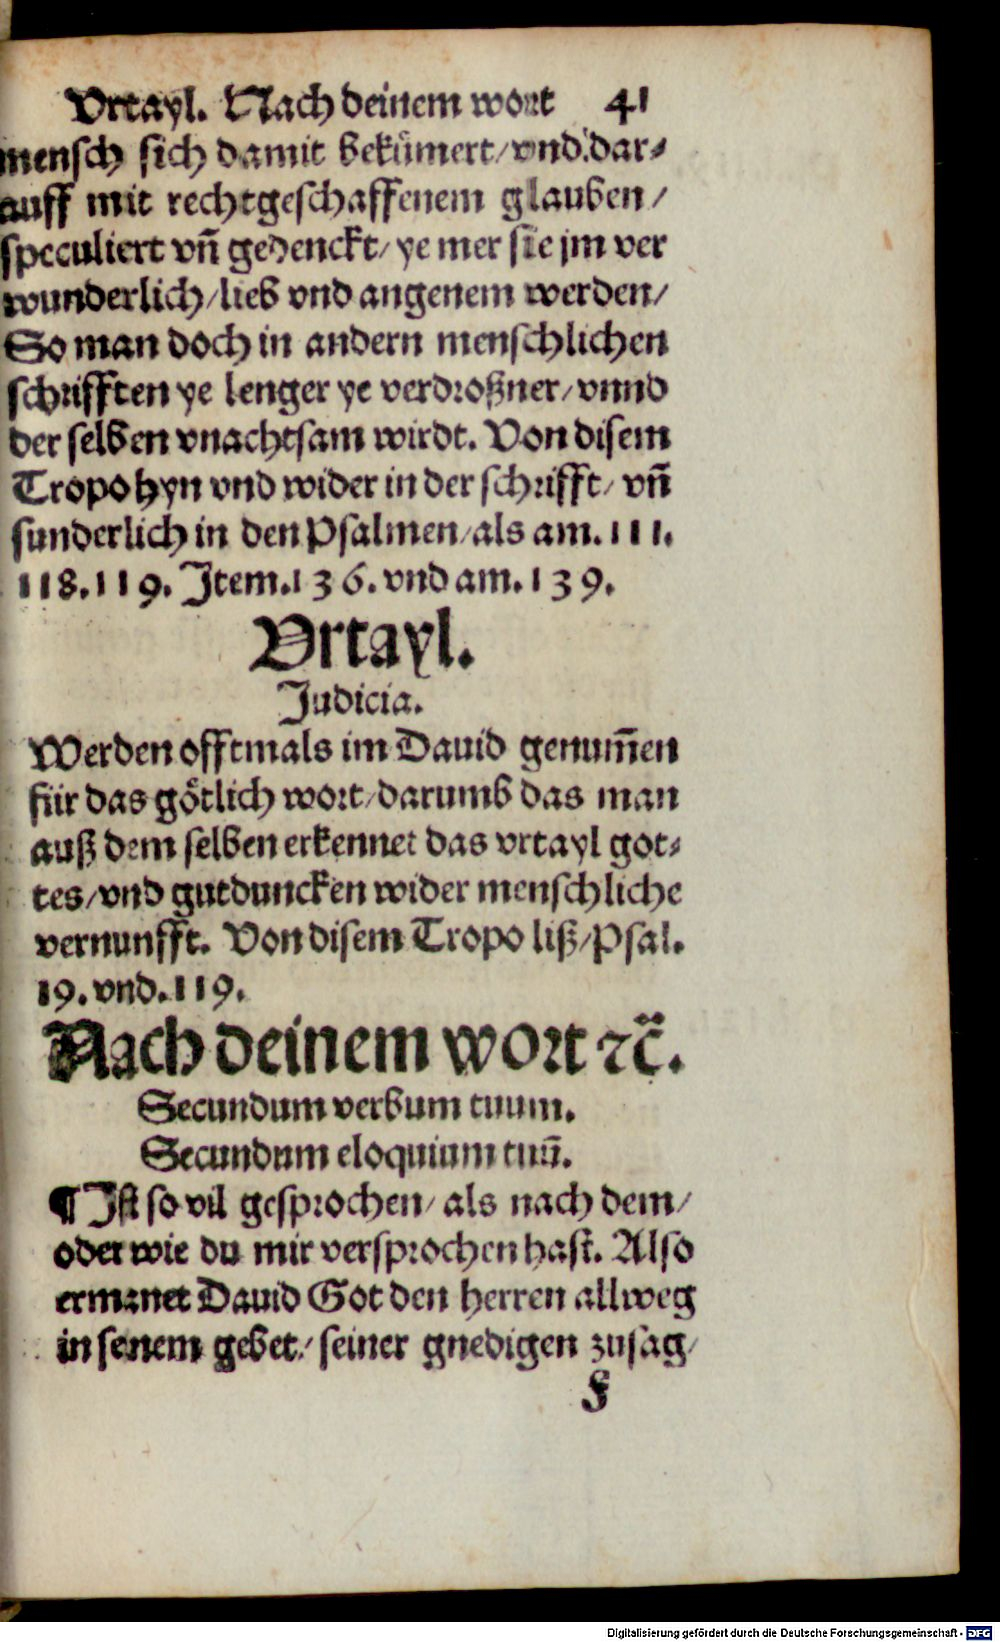 Vrtayl. Nach deinem wort 41
mensch sich damit bekümert/vnd dar⸗
auff mit rechtgeschaffenem glauben/
speculiert vñ gedenckt/ ye mer sie jm ver
wunderlich/lieb vnd angenem werden/
So man doch in andern menschlichen
schrifften ye lenger ye verdroßner/vnnd
der selben vnachtsam wirdt. Von disem
Tropo hyn vnd wider in der schrifft/ vñ
sunderlich in den Psalmen/als am. 111.
118. 119. Item. 136. vnd am. 139.
Vrtayl.
Judicia.
Werden offtmals im Dauid genum̃en
für das götlich wort/darumb das man
auß dem selben erkennet das vrtayl got⸗
tes/vnd gutduncken wider menschliche
vernunfft. Von disem Tropo liß/Psal.
19. vnd. 119.
Nach deinem wort ꝛc̈.
Secundum verbum tuum.
Secundum eloquium tuũ.
¶ Ist so vil gesprochen/ als nach dem/
oder wie du mir versprochen hast. Also
ermanet Dauid Got den herren allweg
in senem gebet/ seiner gnedigen zusag/
F
Digitalisierung gefördert durch die Deutsche Forschungsgemeinschaft - DFG